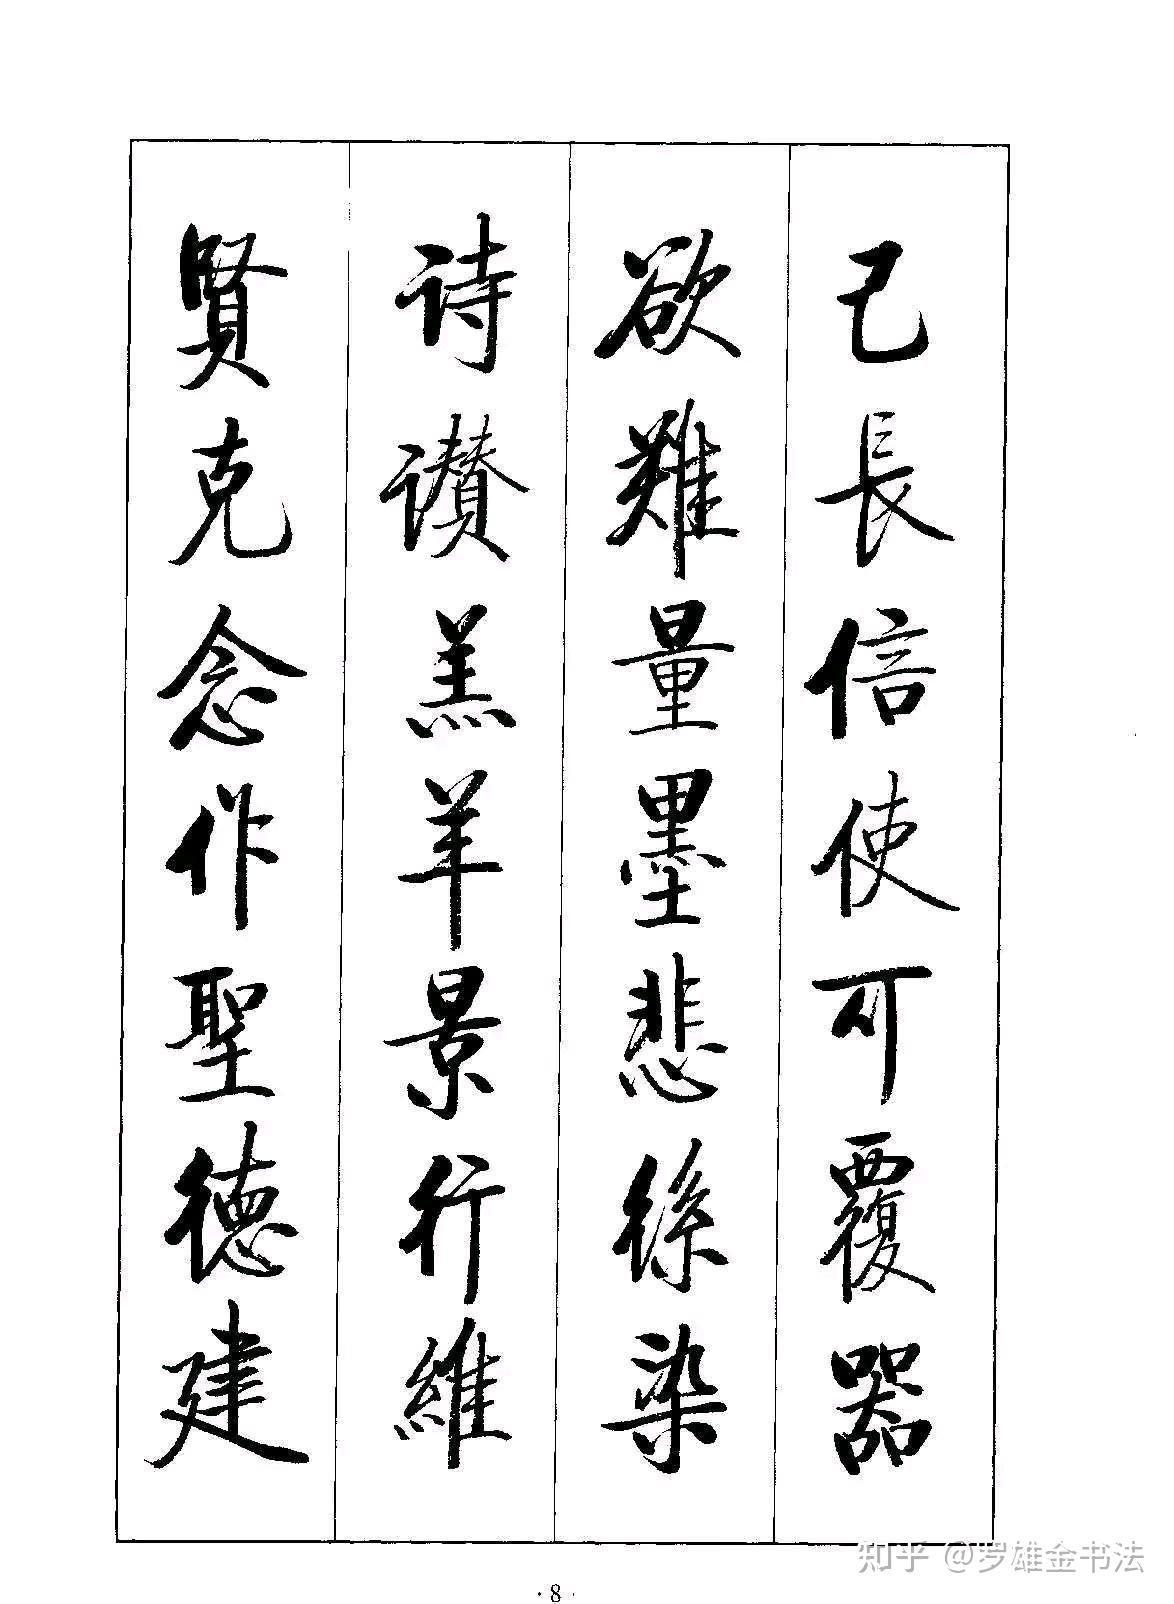 己長信使可覆器
欲難量墨悲絲染
詩讚羔羊景行維
賢克念作聖德建
知乎 @罗雄金书法
· 8 ·